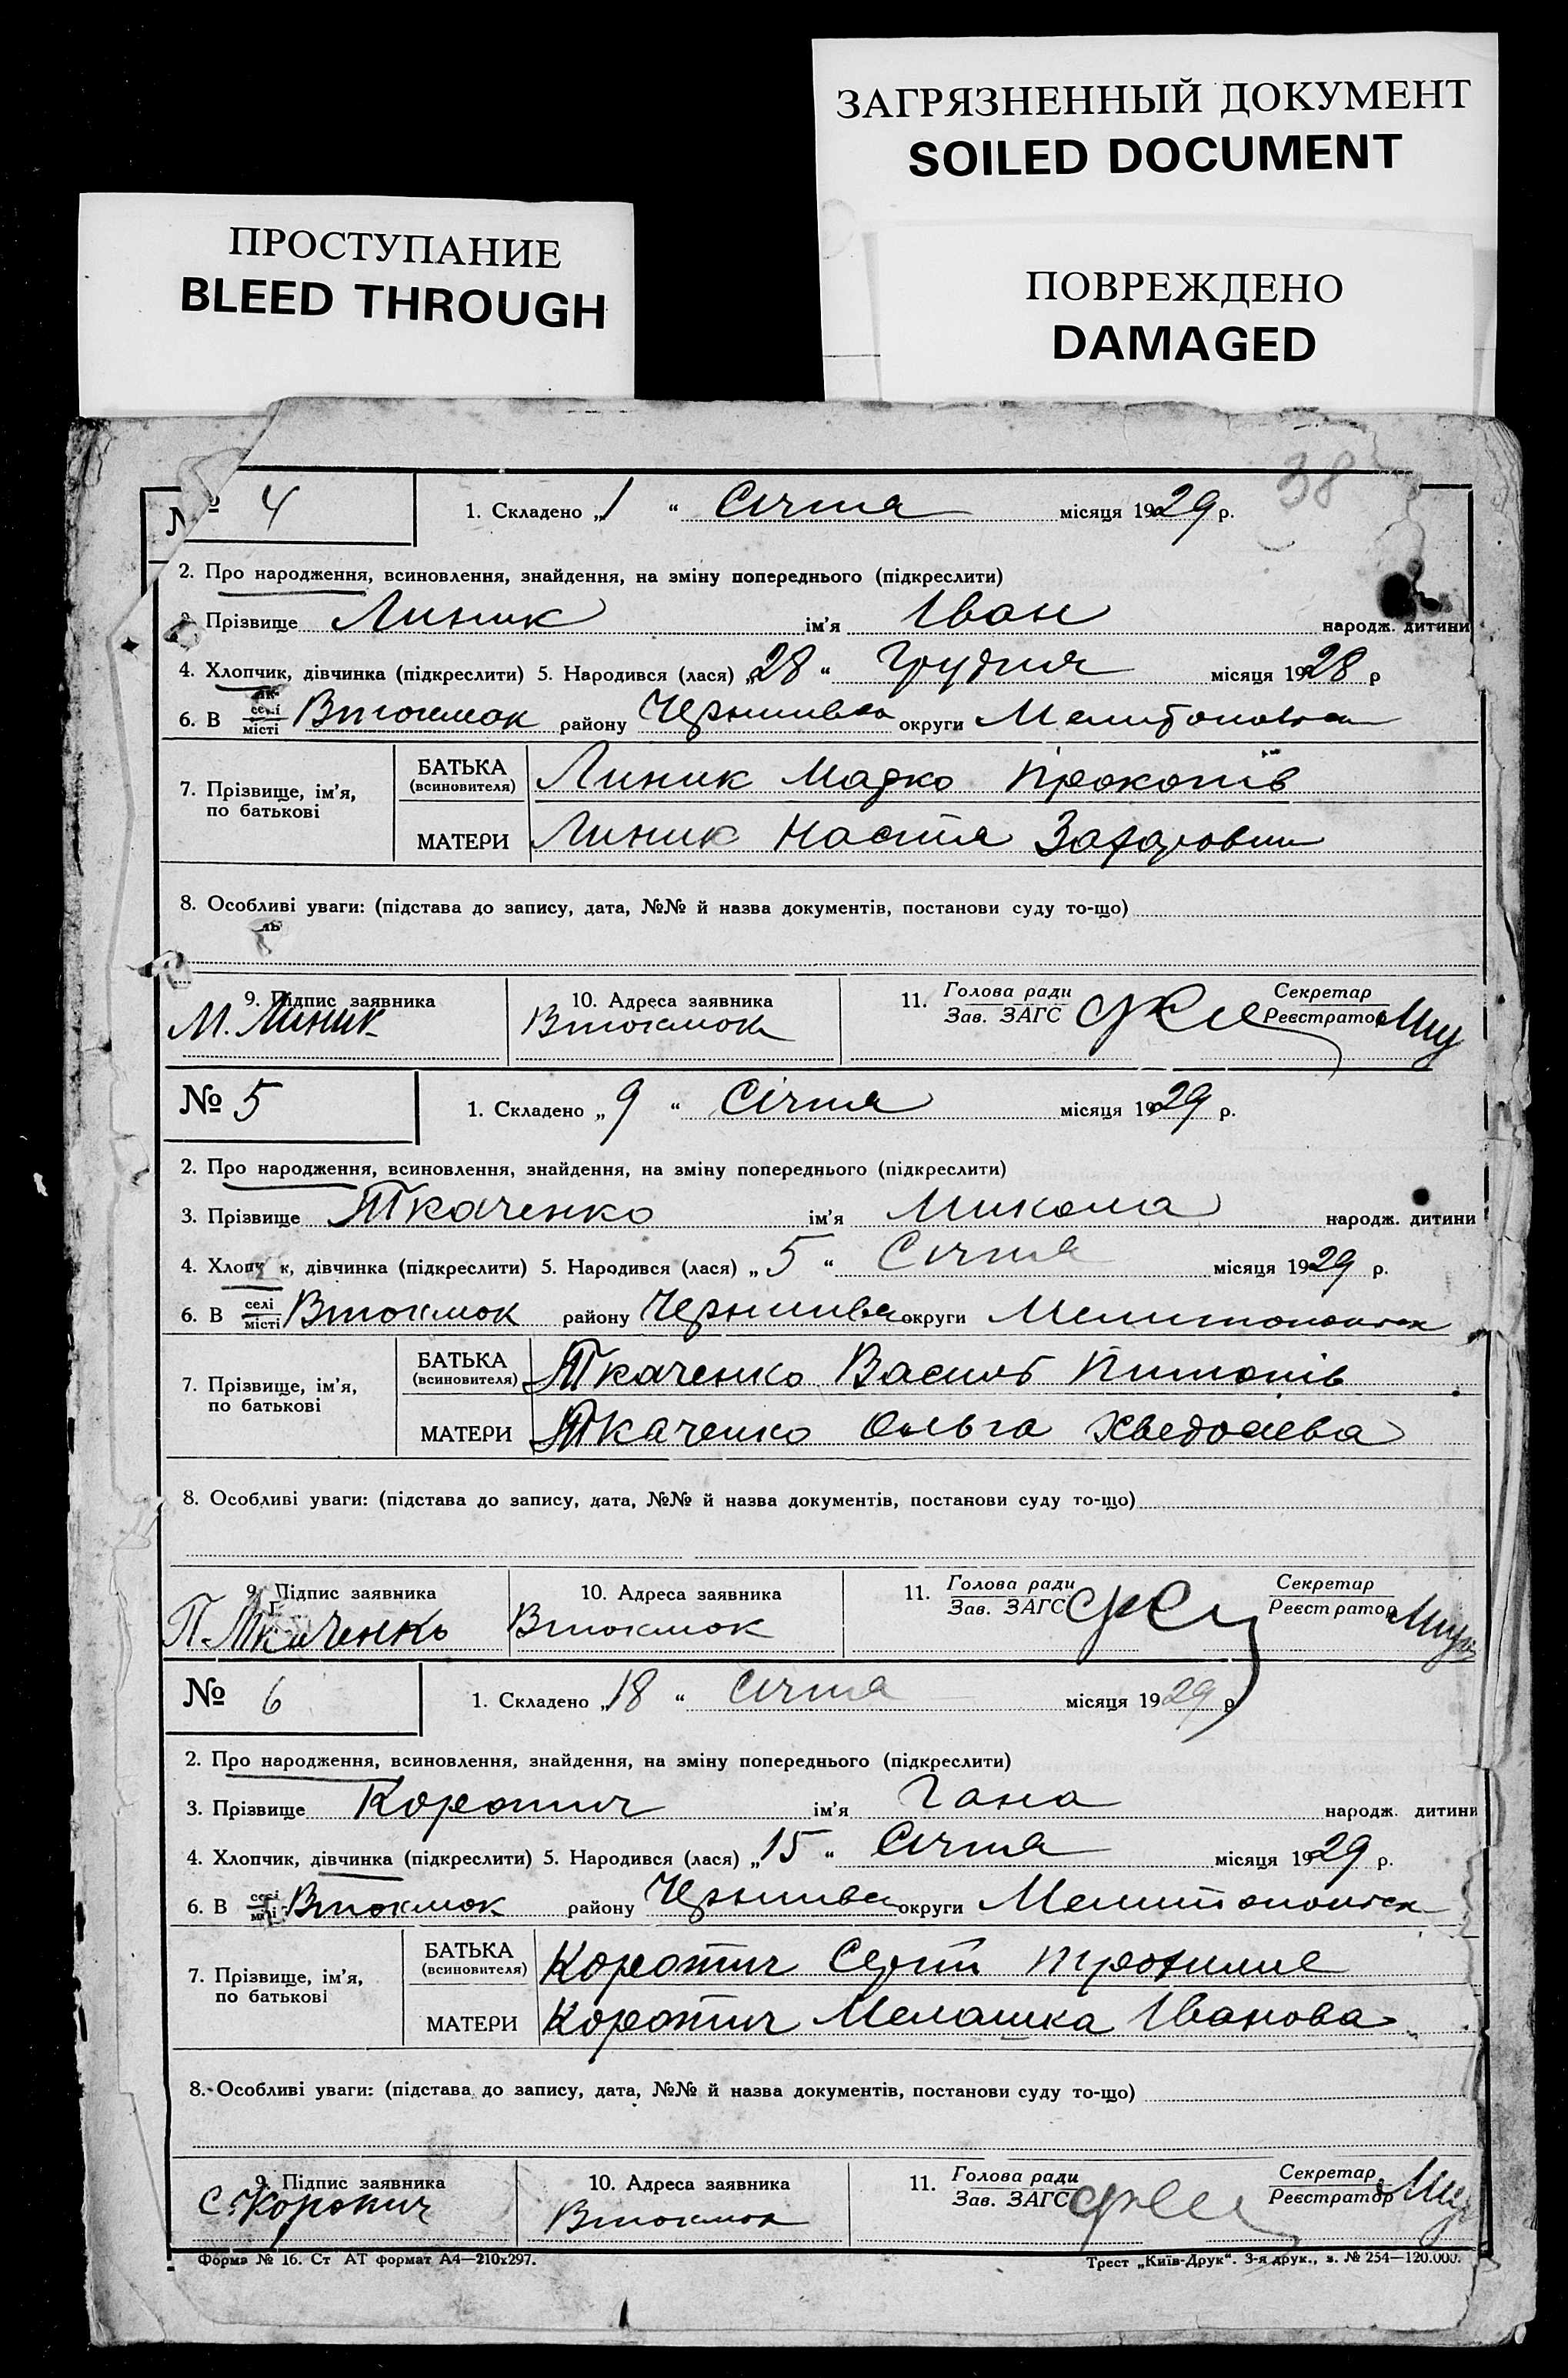 ЗАГРЯЗНЕННЫЙ ДОКУМЕНТ
SOILED DOCUMENT
ПРОСТУПАНИЕ
BLEED THROUGH
ПОВРЕЖДЕНО
DAMAGED
38
№ 4 1. Складено „1“ Січня місяця 1929 р.
2. Про народження, всиновлення, знайдення, на зміну попереднього (підкреслити)
Прізвище Линик ім'я Іван народж. дитини
4. Хлопчик, дівчинка (підкреслити) 5. Народився (лася) „28“ Грудня місяця 1928 р
6. В селі місті Втокмак району округи
7. Прізвище, ім'я, по батькові БАТЬКА (всиновителя) Линик Прокопів
МАТЕРИ Линик Настя
8. Особливі уваги: (підстава до запису, дата, №№ й назва документів, постанови суду то-що)
9. Підпис заявника 10. Адреса заявника 11. Голова ради Зав. ЗАГС Секретар Реєстратор
М. Линик Втокмок
№ 5 1. Складено „9“ Січня місяця 1929 р.
2. Про народження, всиновлення, знайдення, на зміну попереднього (підкреслити)
3. Прізвище Ткаченко ім'я Микола народж. дитини
4. Хлопчик, дівчинка (підкреслити) 5. Народився (лася) „5“ Січня місяця 1929 р.
6. В селі місті Втокмок району округи
7. Прізвище, ім'я, по батькові БАТЬКА (всиновителя) Ткаченко Василь
МАТЕРИ Ткаченко Ольга
8. Особливі уваги: (підстава до запису, дата, №№ й назва документів, постанови суду то-що)
9. Підпис заявника 10. Адреса заявника 11. Голова ради Зав. ЗАГС Секретар Реєстратор
П. Ткаченко Втокмок
№ 6 1. Складено „18“ Січня місяця 1929 р
2. Про народження, всиновлення, знайдення, на зміну попереднього (підкреслити)
3. Прізвище Коротич ім'я Гана народж. дитини
4. Хлопчик, дівчинка (підкреслити) 5. Народився (лася) „15“ Січня місяця 1929 р.
6. В селі місті Втокмок району округи
7. Прізвище, ім'я, по батькові БАТЬКА (всиновителя) Коротич
МАТЕРИ Коротич Мелашка Іванова
8. Особливі уваги: (підстава до запису, дата, №№ й назва документів, постанови суду то-що)
9. Підпис заявника 10. Адреса заявника 11. Голова ради Зав. ЗАГС Секретар Реєстратор
С. Коротич Втокмок
Форма № 16. Ст АТ формат А4—210x297. Трест „Київ-Друк“. 3-я друк., з. № 254—120.000.